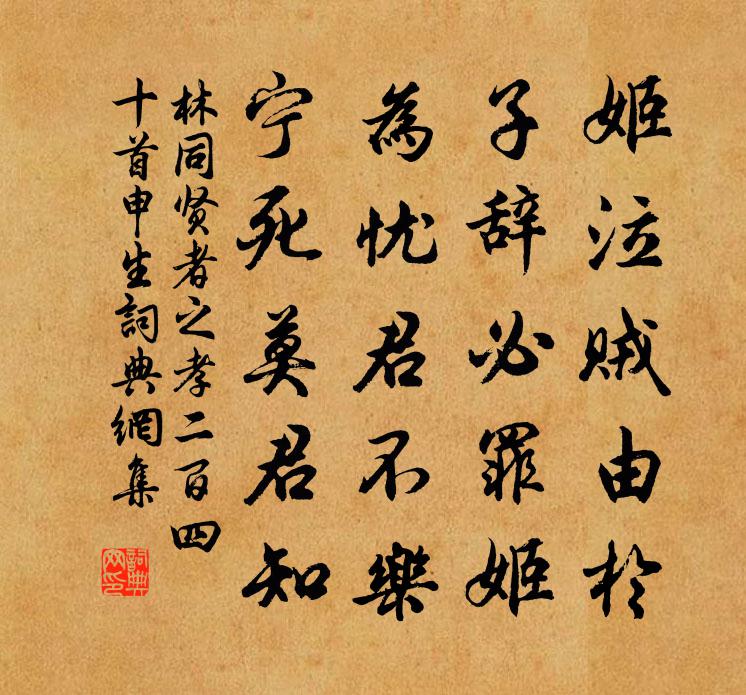 姬泣贼由於
子辞必罪姬
為忧君不樂
宁死莫君知
林同贤者之孝二百四
十首申生詞典網集
詞典网印